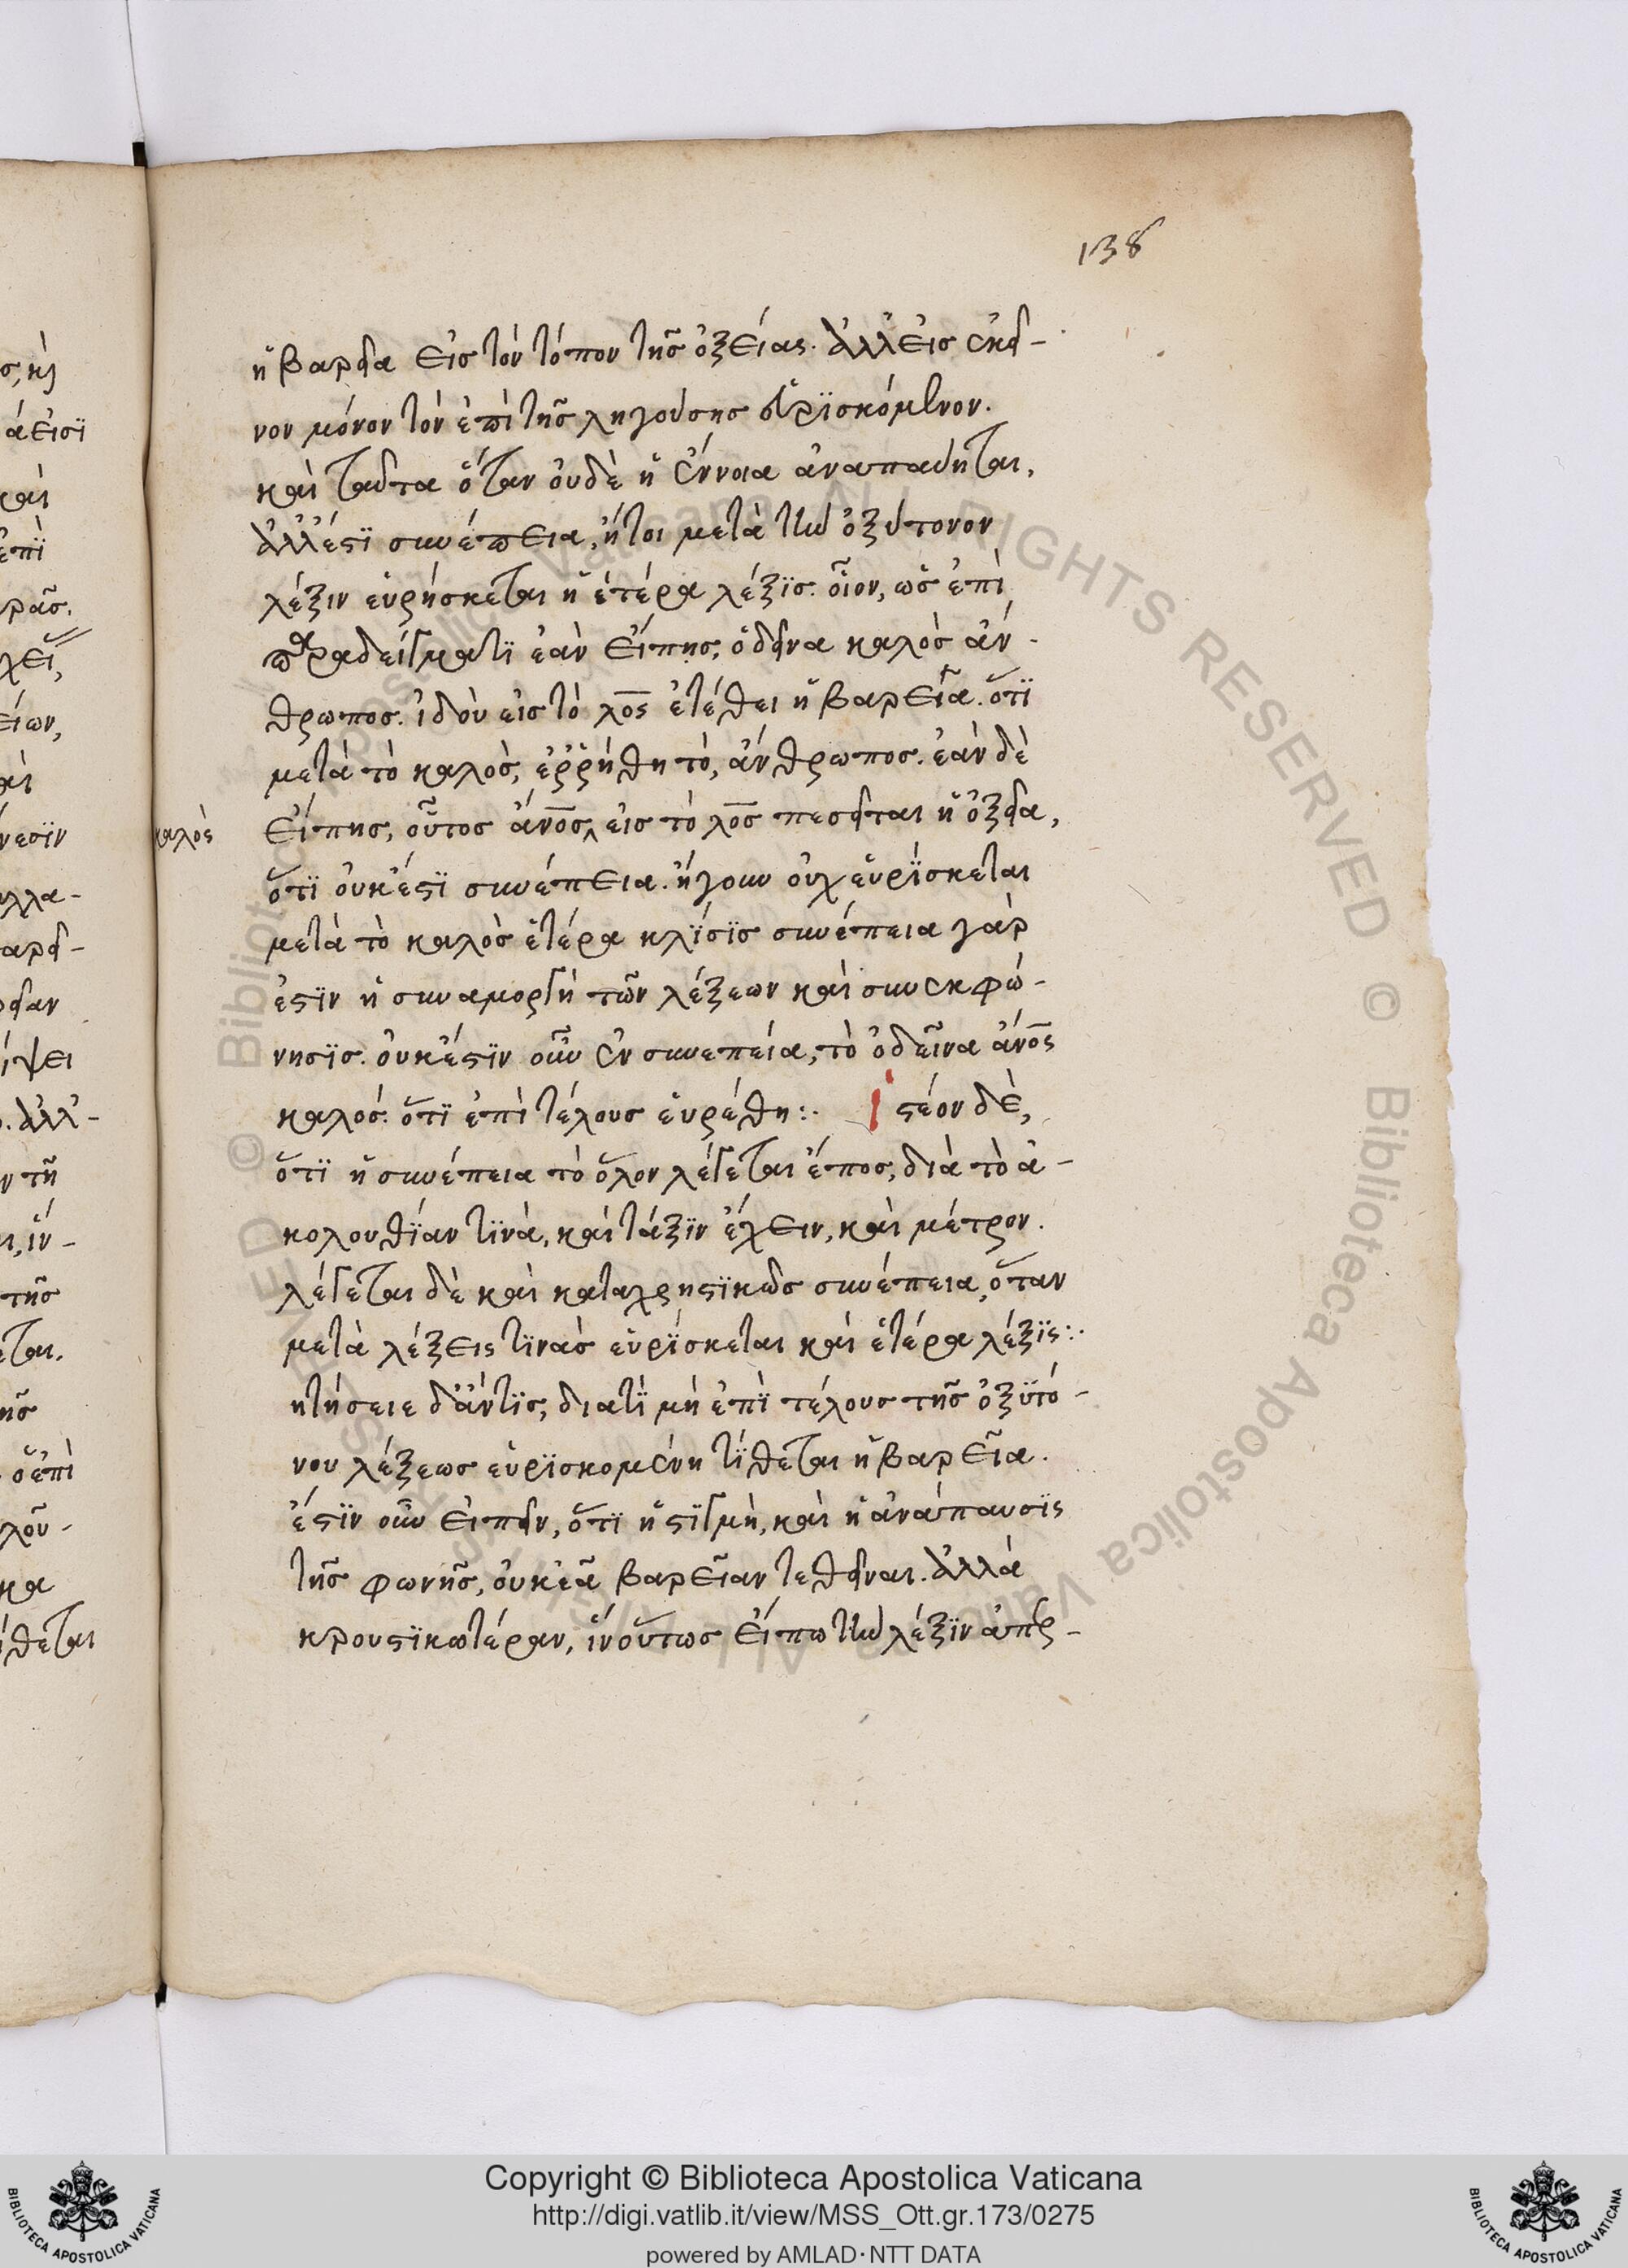 138
ἡ βαρεία εἰς τὸν τόπον τῆς ὀξείας. ἀλλ' εἰς ἐκεῖ-
νον μόνον τὸν ἐπὶ τῆς ληγούσης εὑρϊσκόμενον.
καὶ ταῦτα ὅταν οὐδὲ ἡ ἔννοια ἀναπαύηται,
ἀλλ' ἔστϊ συνέπεια, ἤτοι μετὰ τὴν ὀξύτονον
λέξιν εὑρήσκεται ἡ ἑτέρα λέξϊς. οἷον, ὡς ἐπὶ
παραδείγματϊ ἐὰν εἴπης, ὁ δεῖνα καλὸς ἄν-
θρωπος. ἰδοὺ εἰς τὸ λος ἐτέθει ἡ βαρεῖα. ὅτϊ
μετὰ τὸ καλὸς, ἐρρήθη τὸ, ἄνθρωπος. ἐὰν δὲ
εἴπης, οὗτος ἄνος, εἰς τὸ λος πεσεῖται ἡ ὀξεῖα,
καλὸς
ὅτϊ οὐκ ἔστϊ συνέπεια. ἤγουν οὐχ εὑρϊσκεται
μετὰ τὸ καλὸς ἑτέρα κλϊσϊς συνέπεια γὰρ
ἐστϊν ἡ συναμοργὴ τῶν λέξεων καὶ συνεκφώ-
νησϊς. οὐκ ἔστϊν οὖν ἐν συνεπεία, τὸ ὁ δεῖνα ἄνος
καλός. ὅτϊ ἐπὶ τέλους εὑρέθη:. Ἰστέον δὲ,
ὅτϊ ἡ συνέπεια τὸ ὅλον λέγεται ἔπος, διὰ τὸ ἀ-
κολουθϊαν τϊνὰ, καὶ τάξϊν ἔχειν, καὶ μέτρον.
λέγεται δὲ καὶ καταχρηστϊκῶς συνέπεια, ὅταν
μετὰ λέξεις τϊνὰς εὑρϊσκεται καὶ ἑτέρα λέξϊς:.
ητήσειε δ' ἄν τϊς, διατϊ μὴ ἐπϊ τέλους τῆς ὀξϋτό-
νου λέξεως εὑρϊσκομένη τϊθεται ἡ βαρεῖα.
ἔστϊν οὖν εἰπεῖν, ὅτϊ ἡ στϊγμὴ, καὶ ἡ ἀνάπαυσϊς
τῆς φωνῆς, οὐκ ἐᾶ βαρεῖαν τεθεῖναι. ἀλλὰ
κρουστϊκωτέραν, ἵν' οὕτως εἴπω τὴν λέξϊν ἀπερ-
Copyright © Biblioteca Apostolica Vaticana
http://digi.vatlib.it/view/MSS_Ott.gr.173/0275
powered by AMLAD·NTT DATA
BIBLIOTECA APOSTOLICA VATICANA
BIBLIOTECA APOSTOLICA VATICANA